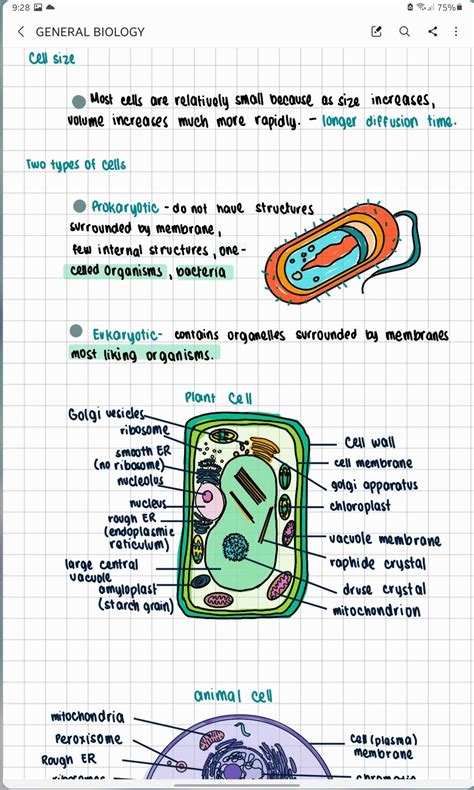 9:28
75%
GENERAL BIOLOGY
Cell size
Most cells are relatively small because as size increases,
volume increases much more rapidly. - longer diffusion time.
Two types of cells
Prokaryotic - do not have structures
surrounded by membrane,
few internal structures, one-
celled organisms, bacteria
Eukaryotic- contains organelles surrounded by membranes
most liking organisms.
Plant Cell
Golgi vesicles
ribosome
smooth ER
(no ribosome)
nucleolus
nucleus
rough ER
(endoplasmic
reticulum)
large central
vacuole
amyloplast
(starch grain)
cell wall
cell membrane
golgi apparatus
chloroplast
vacuole membrane
raphide crystal
druse crystal
mitochondrion
animal cell
mitochondria
Peroxisome
Rough ER
ribosomes
cell (plasma)
membrane
chromatin